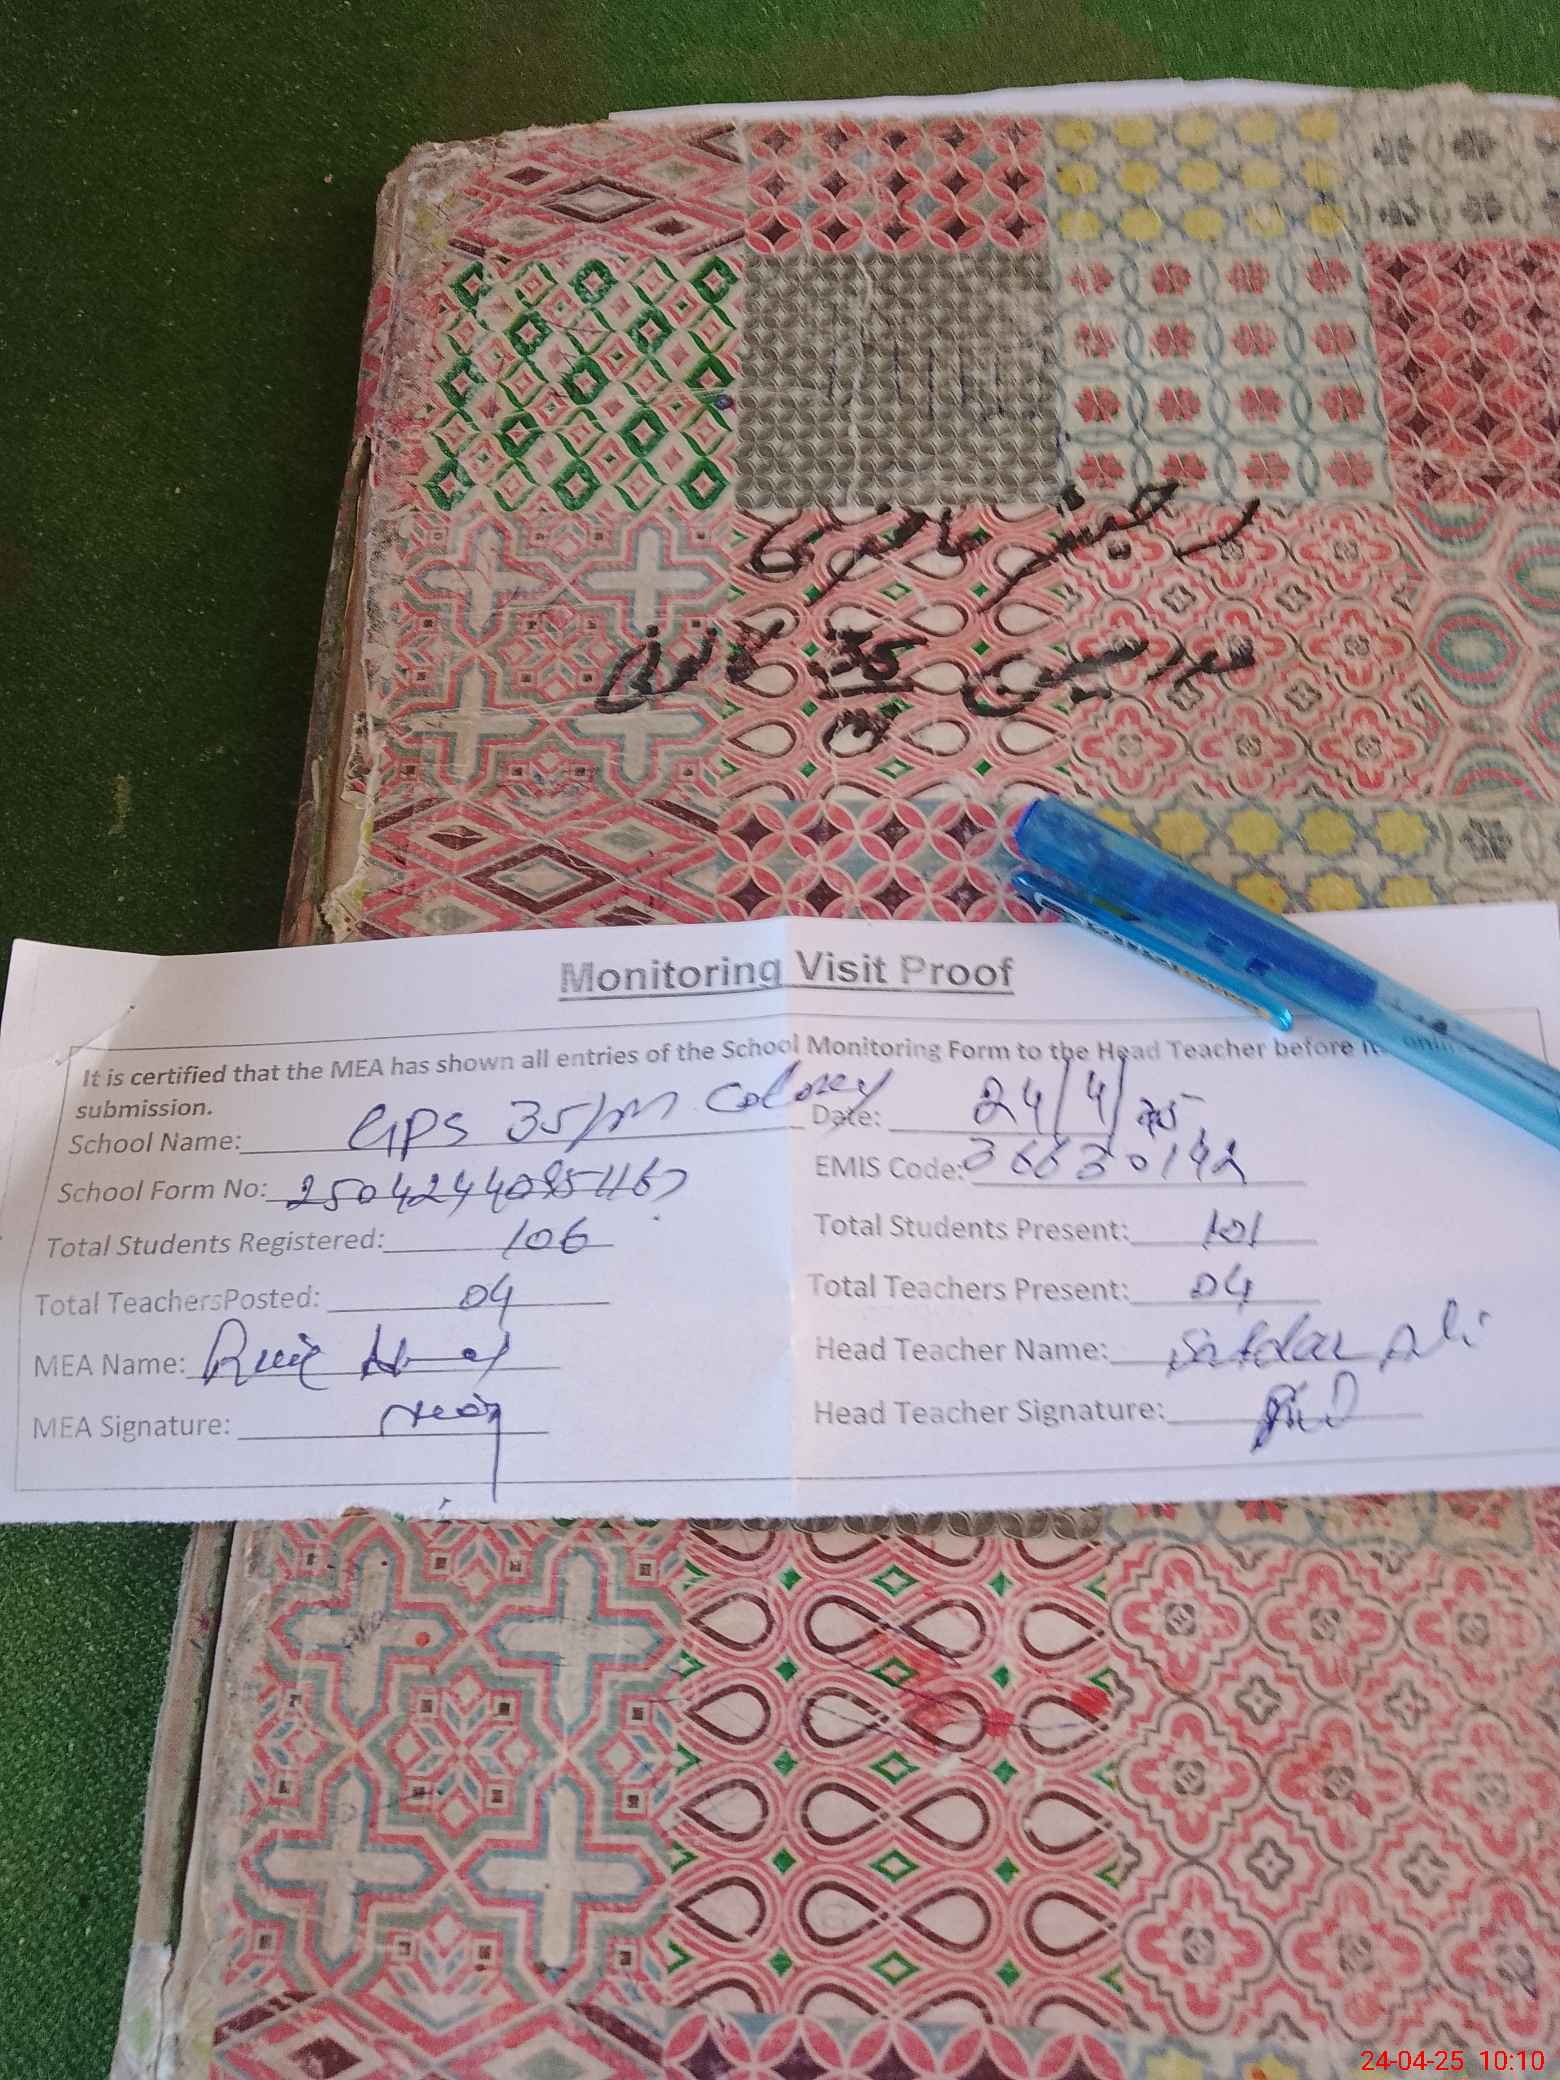 رجسٹر حاضری
مدرسین 35/M کالونی
Monitoring Visit Proof
It is certified that the MEA has shown all entries of the School Monitoring Form to the Head Teacher before
submission.
School Name: GPS 35/M Colony Date: 24/4/25
School Form No: EMIS Code: 36630142
Total Students Registered: 106 Total Students Present: 101
Total TeachersPosted: 04 Total Teachers Present: 04
MEA Name: Head Teacher Name: Ali
MEA Signature: Head Teacher Signature:
24-04-25 10:10